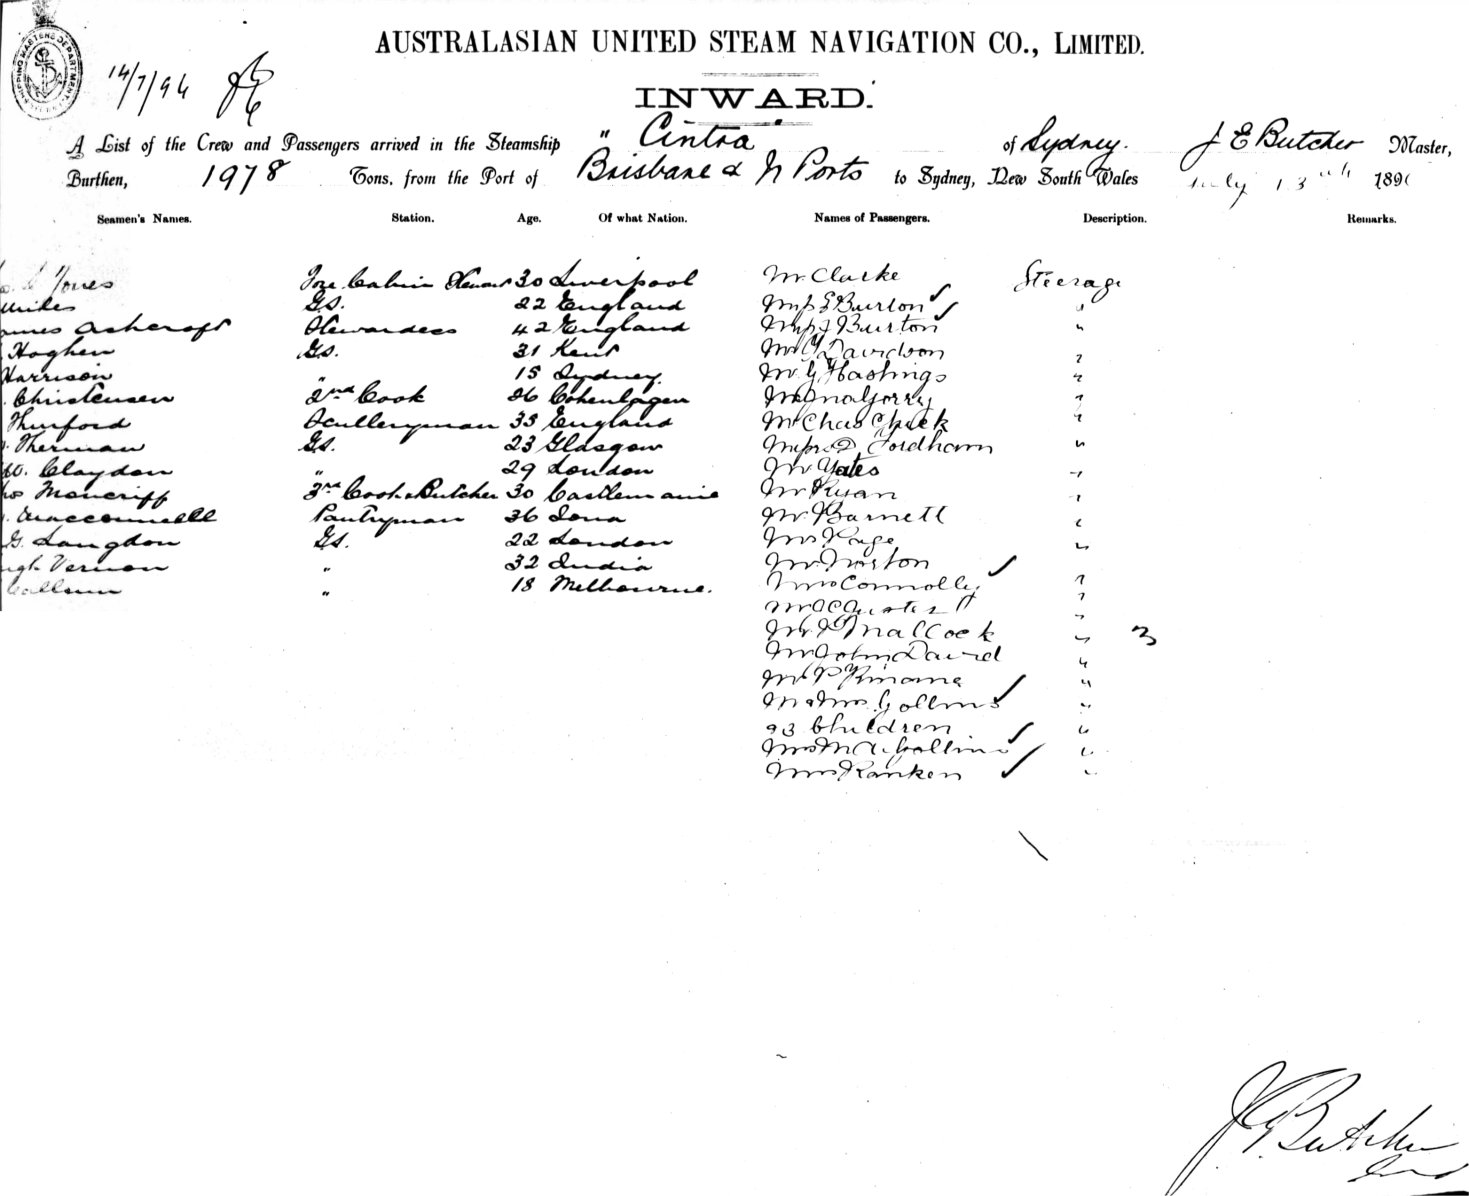 SHIPPING MASTERS DEPARTMENT
14/7/96
AUSTRALASIAN UNITED STEAM NAVIGATION CO., LIMITED.
INWARD.
A List of the Crew and Passengers arrived in the Steamship "Cintra of Sydney. J E Butcher Master,
Burthen, 1978 Tons, from the Port of Brisbane & N Ports to Sydney, New South Wales July 13th 189
Seamen's Names. Station. Age. Of what Nation. Names of Passengers. Description. Remarks.
Jones Fore Cabin Steward 30 Liverpool Mr Clarke Steerage
GS. 22 England Miss E Burton ✓ "
Ashcroft Stewardess 42 England Miss J Burton ✓ "
Hoghen GS. 31 Kent Mr Davidson "
Harrison " 15 Sydney. Mr G Hastings "
Christensen 2nd Cook 26 Cohenhagen "
Thurford Sculleryman 35 England Mr Chas Cheek "
Therman GS. 23 Glasgow Fordham "
Claydon " 29 London Mr Yates "
Moncriff 3rd Cook & Butcher 30 Castlemaine Mr Ryan "
Macconnell Pantryman 36 Iona Mr Barnett "
G. Langdon GS. 22 London Mrs Page "
Vernon " 32 India Mr Norton ✓ "
Callum " 18 Melbourne. Mrs Connolly "
"
Mallcock " 3
Mr John David "
Mr P Kinane "
Mr & Mrs Collins ✓ "
& 3 Children ✓ "
Mrs M A Collins ✓ "
Mrs Ranken ✓ "
J E Butcher